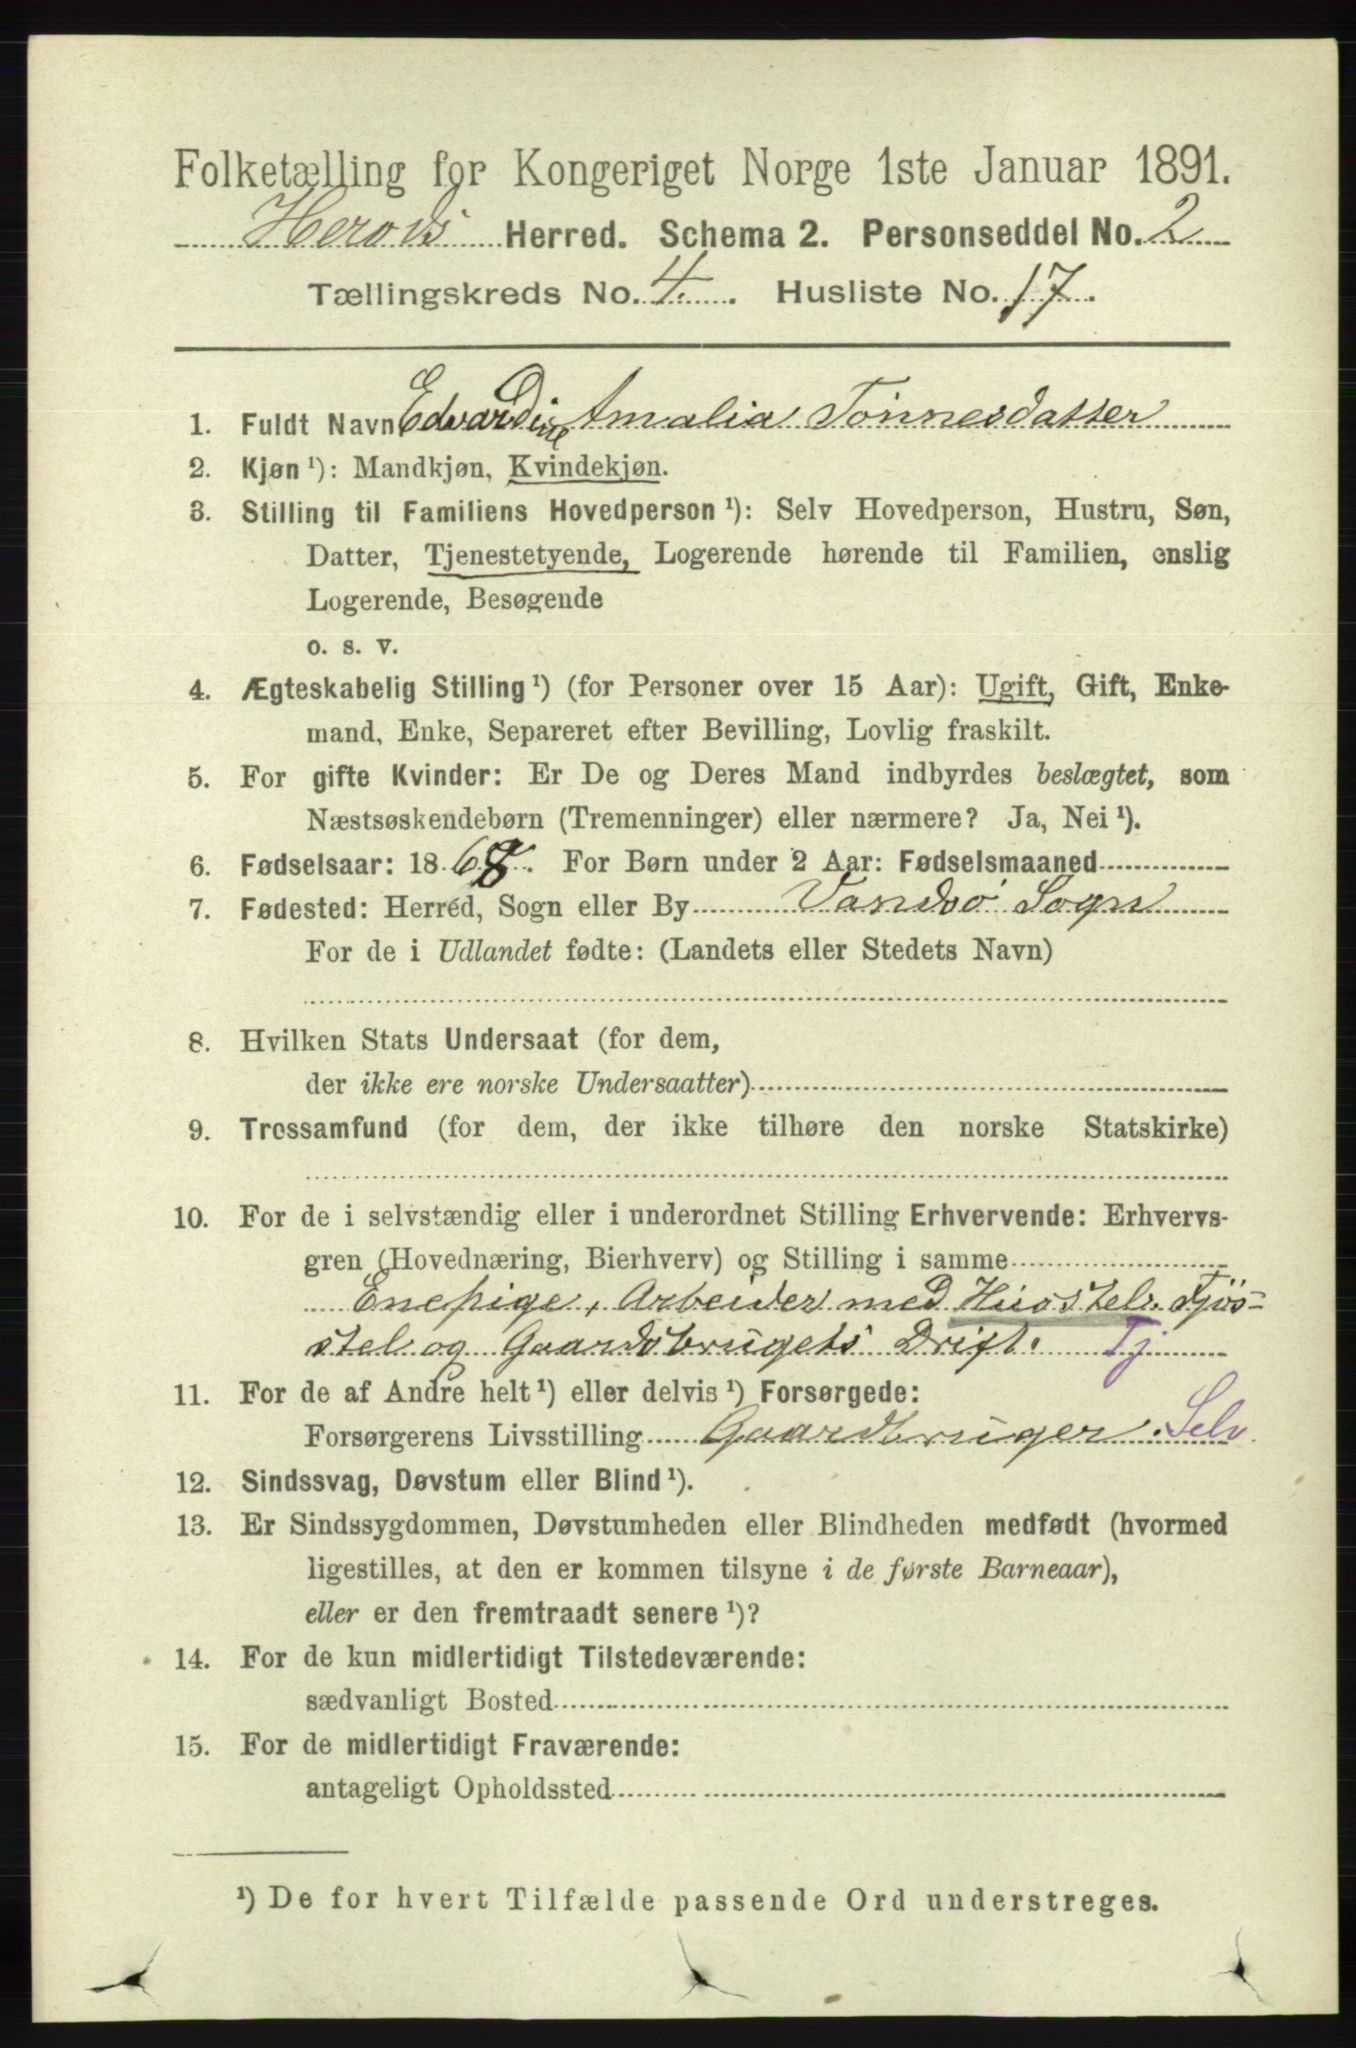 Folketælling for Kongeriget Norge 1ste Januar 1891.
Herods Herred. Schema 2. Personseddel No. 2
Tællingskreds No. 4. Husliste No. 17.
1. Fuldt Navn Edvardine Amalia Tönnesdatter
2. Kjøn ¹): Mandkjøn, Kvindekjøn.
3. Stilling til Familiens Hovedperson ¹): Selv Hovedperson, Hustru, Søn,
Datter, Tjenestetyende, Logerende hørende til Familien, enslig
Logerende, Besøgende
o. s. v.
4. Ægteskabelig Stilling ¹) (for Personer over 15 Aar): Ugift, Gift, Enke-
mand, Enke, Separeret efter Bevilling, Lovlig fraskilt.
5. For gifte Kvinder: Er De og Deres Mand indbyrdes beslægtet, som
Næstsøskendebørn (Tremenninger) eller nærmere? Ja, Nei ¹).
6. Fødselsaar: 1868. For Børn under 2 Aar: Fødselsmaaned
7. Fødested: Herred, Sogn eller By Vandsö Sogn
For de i Udlandet fødte: (Landets eller Stedets Navn)
8. Hvilken Stats Undersaat (for dem,
der ikke ere norske Undersaatter)
9. Trossamfund (for dem, der ikke tilhøre den norske Statskirke)
10. For de i selvstændig eller i underordnet Stilling Erhvervende: Erhvervs-
gren (Hovednæring, Bierhverv) og Stilling i samme
Enepige, Arbeider med Huusstel, Fjös-
stel og Gaardsbrugets Drift. Tj
11. For de af Andre helt ¹) eller delvis ¹) Forsørgede:
Forsørgerens Livsstilling Gaardbruger. Selv
12. Sindssvag, Døvstum eller Blind ¹).
13. Er Sindssygdommen, Døvstumheden eller Blindheden medfødt (hvormed
ligestilles, at den er kommen tilsyne i de første Barneaar),
eller er den fremtraadt senere ¹)?
14. For de kun midlertidigt Tilstedeværende:
sædvanligt Bosted
15. For de midlertidigt Fraværende:
antageligt Opholdssted
¹) De for hvert Tilfælde passende Ord understreges.